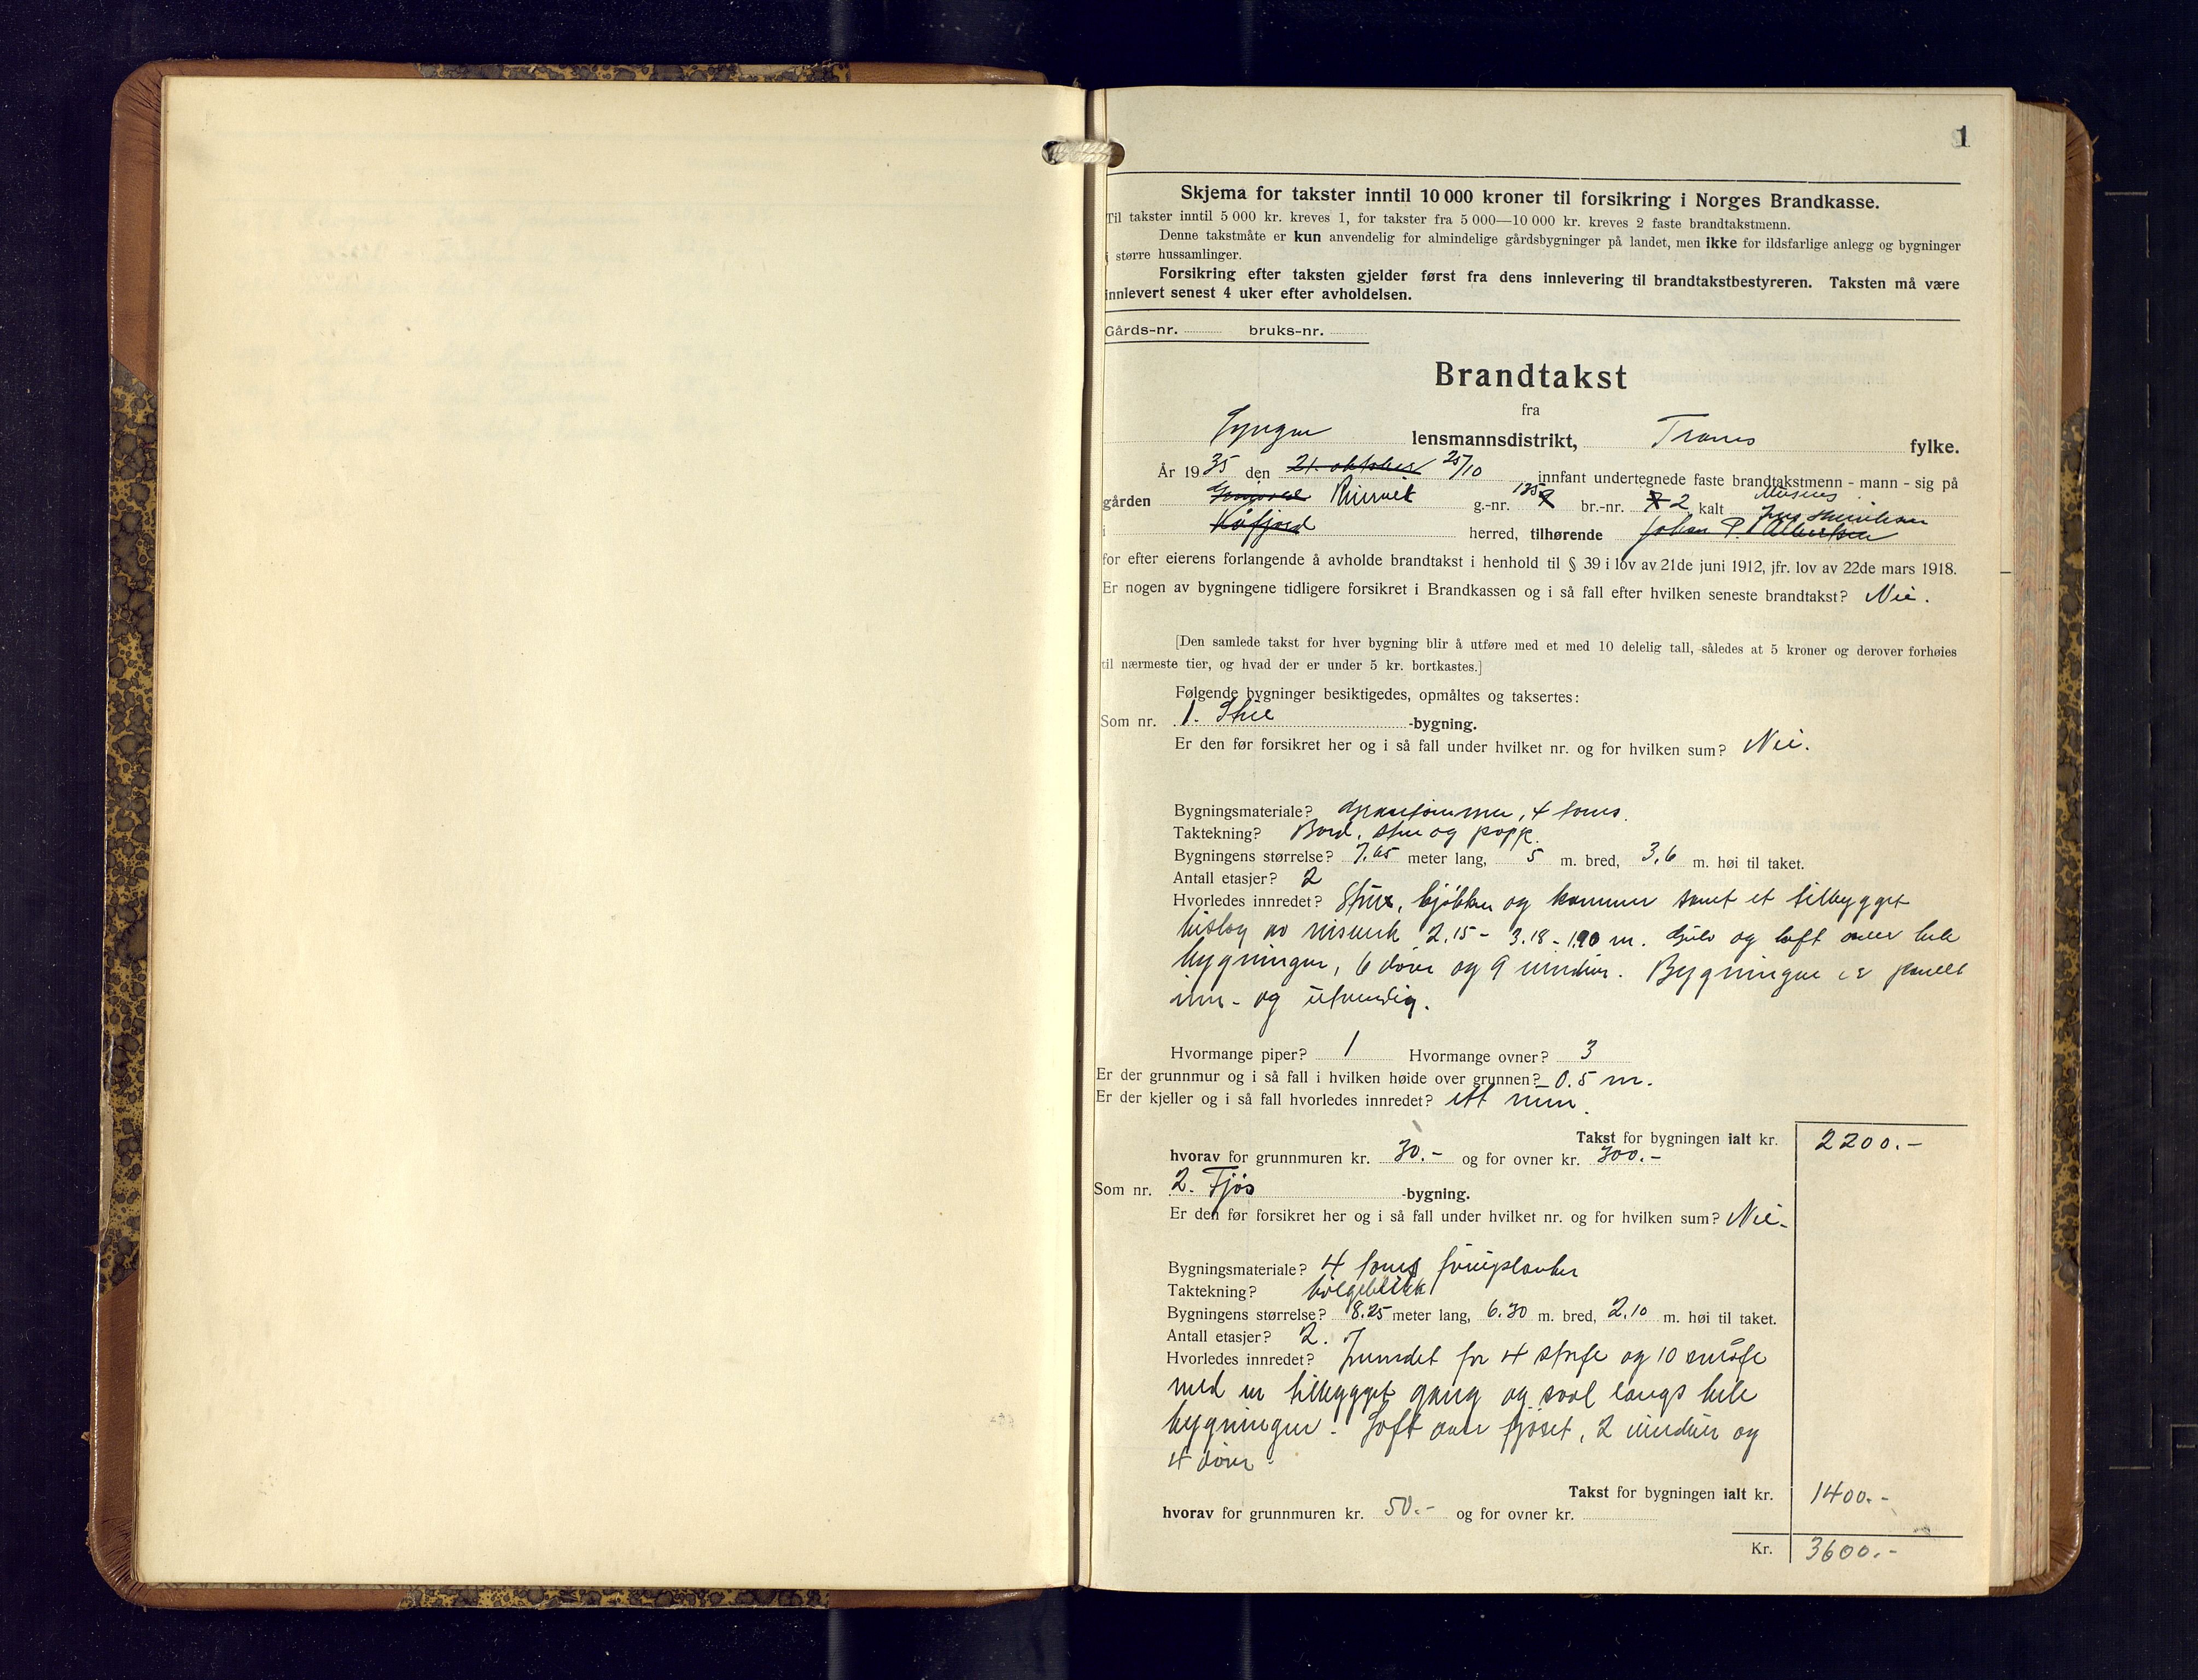 1
Skjema for takster inntil 10 000 kroner til forsikring i Norges Brandkasse.
Til takster inntil 5 000 kr. kreves 1, for takster fra 5 000—10 000 kr. kreves 2 faste brandtakstmenn.
Denne takstmåte er kun anvendelig for almindelige gårdsbygninger på landet, men ikke for ildsfarlige anlegg og bygninger
i større hussamlinger.
Forsikring efter taksten gjelder først fra dens innlevering til brandtakstbestyreren. Taksten må være
innlevert senest 4 uker efter avholdelsen.
Gårds-nr. bruks-nr.
Brandtakst
fra
Lyngen lensmannsdistrikt, Troms fylke.
År 1935 den 21. oktober 25/10 innfant undertegnede faste brandtakstmenn - mann - sig på
gården g.-nr. br.-nr. 2 kalt
i Kåfjord herred, tilhørende Johan P.
for efter eierens forlangende å avholde brandtakst i henhold til § 39 i lov av 21de juni 1912, jfr. lov av 22de mars 1918.
Er nogen av bygningene tidligere forsikret i Brandkassen og i så fall efter hvilken seneste brandtakst? Nei.
[Den samlede takst for hver bygning blir å utføre med et med 10 delelig tall, således at 5 kroner og derover forhøies
til nærmeste tier, og hvad der er under 5 kr. bortkastes.]
Følgende bygninger besiktigedes, opmåltes og taksertes:
Som nr. 1. Stue -bygning.
Er den før forsikret her og i så fall under hvilket nr. og for hvilken sum? Nei.
Bygningsmateriale? 4 toms.
Taktekning? Bord, og papp.
Bygningens størrelse? 7.65 meter lang, 5 m. bred, 3,6 m. høi til taket.
Antall etasjer? 2
Hvorledes innredet? Stue, kjøkken og kammer samt et tilbygget
bislag av 2.15 - 3.18 - 1.90 m. Gulv og loft over hele
bygningen, 6 dører og 9 vinduer. Bygningen er panelt
inn- og utvendig.
Hvormange piper? 1 Hvormange ovner? 3
Er der grunnmur og i så fall i hvilken høide over grunnen? 0.5 m.
Er der kjeller og i så fall hvorledes innredet? ett rum.
Takst for bygningen ialt kr. 2200.-
hvorav for grunnmuren kr. 30.- og for ovner kr. 300.-
Som nr. 2. Fjøs -bygning.
Er den før forsikret her og i så fall under hvilket nr. og for hvilken sum? Nei.
Bygningsmateriale? 4 toms furuplanker
Taktekning? bølgeblikk
Bygningens størrelse? 8.25 meter lang, 6.30 m. bred, 2.10 m. høi til taket.
Antall etasjer? 2.
Hvorledes innredet? Innredet for 4 storfe og 10 småfe
med en tilbygget gang og sval langs hele
bygningen. Loft over fjøset, 2 vinduer og
4 dører.
Takst for bygningen ialt kr. 1400.-
hvorav for grunnmuren kr. 50.- og for ovner kr.
Kr. 3600.-